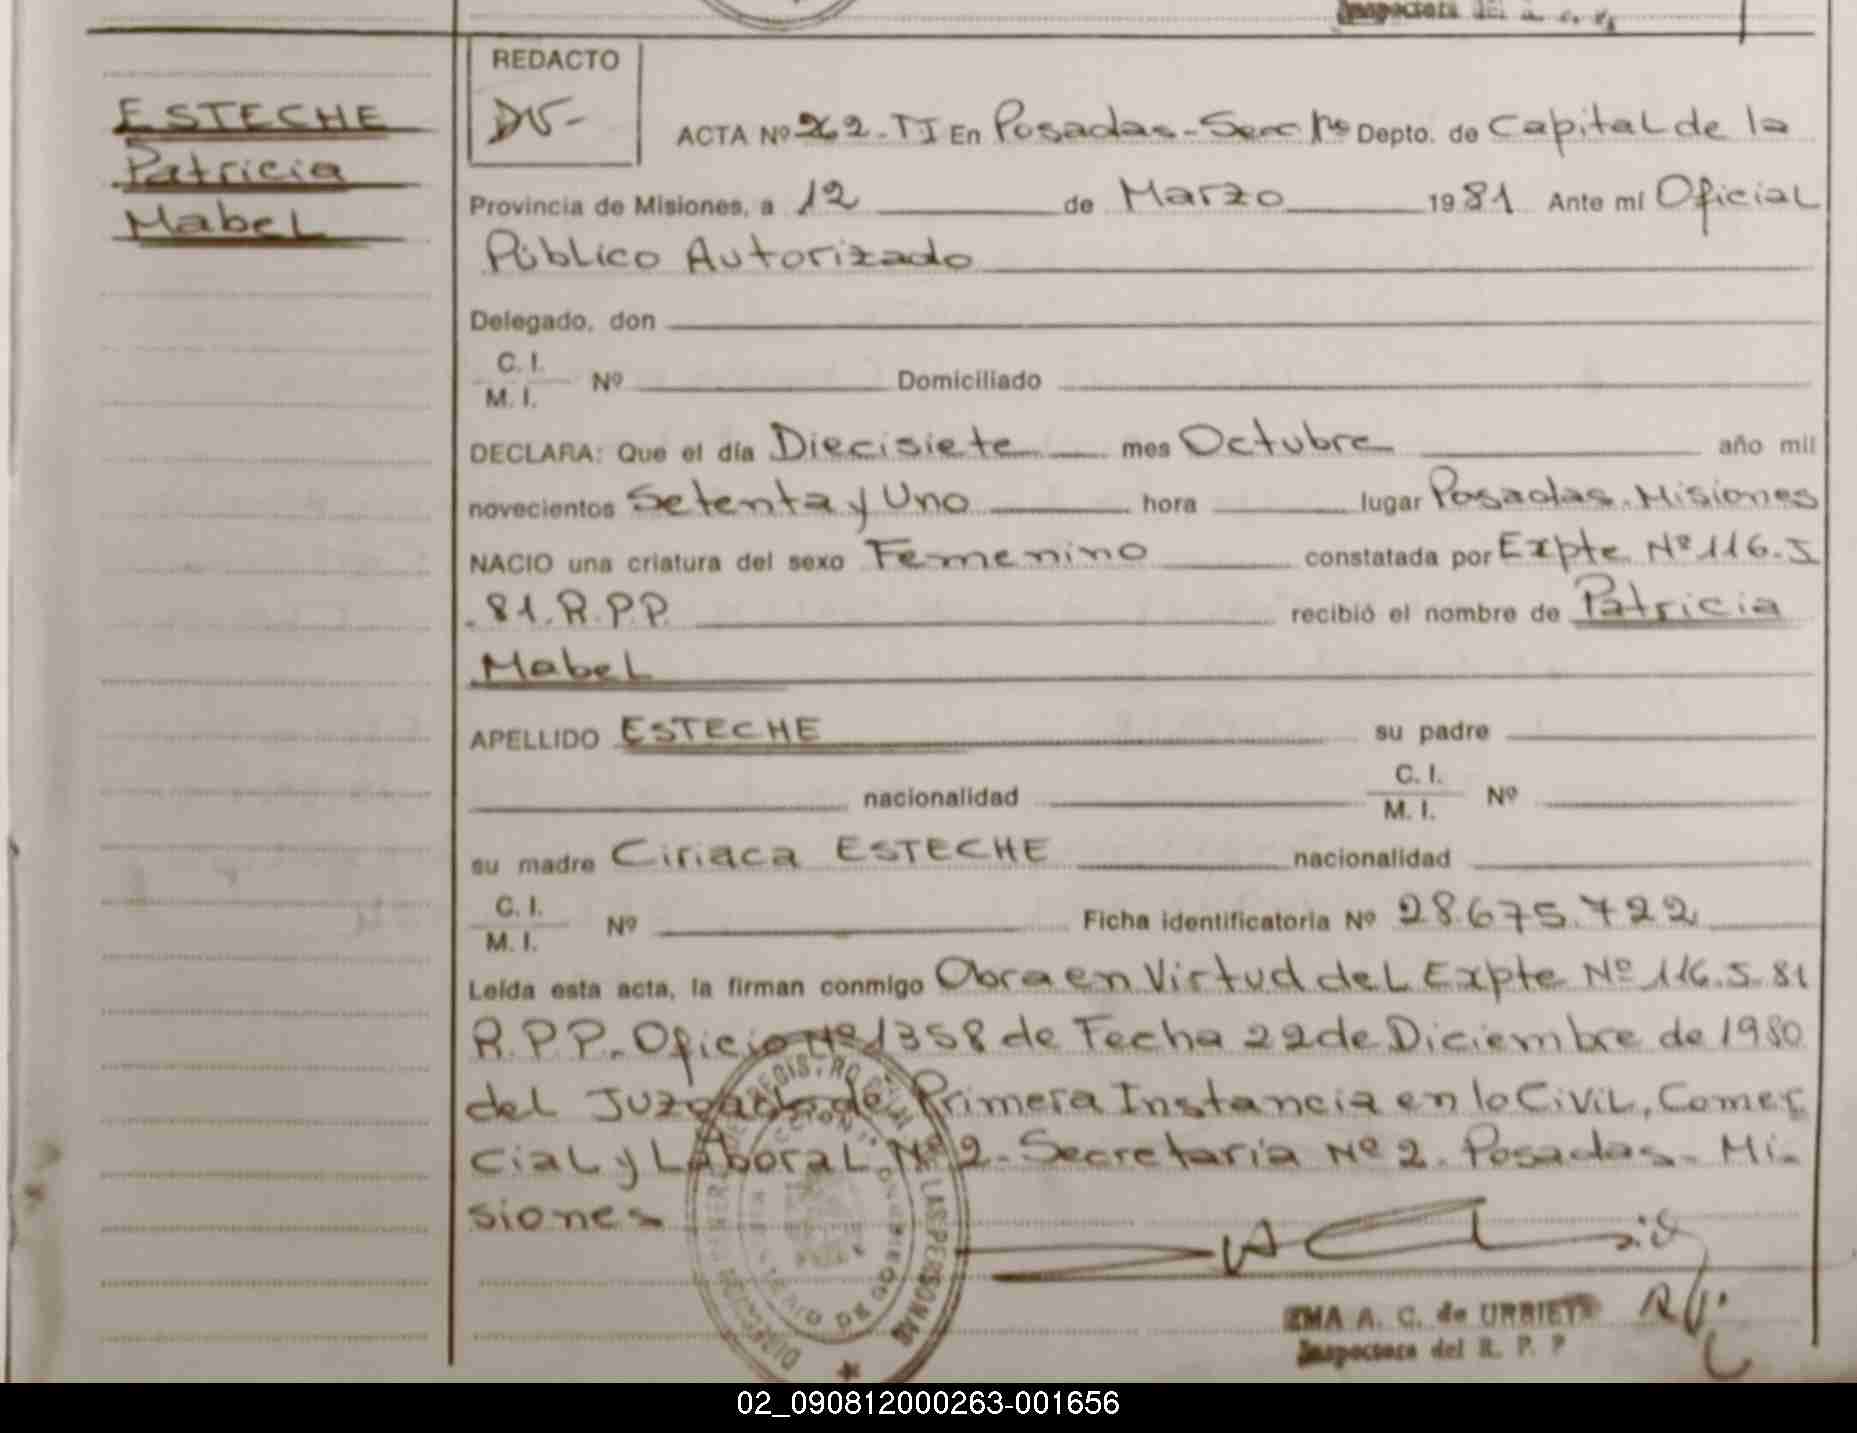 Inspectora del
REDACTO
DV-
ESTECHE
Patricia
Mabel
ACTA Nº 262-TI En Posadas-Secc 1º Depto. de Capital de la
Provincia de Misiones, a 12 de Marzo 1981 Ante mí Oficial
Público Autorizado
Delegado, don
C. I.
M. I. Nº Domiciliado
DECLARA: Que el día Diecisiete mes Octubre año mil
novecientos Setenta y Uno hora lugar Posadas. Misiones
NACIO una criatura del sexo Femenino constatada por Expte Nº 116.S
.81.R.P.P. recibió el nombre de Patricia
Mabel
APELLIDO ESTECHE su padre
nacionalidad C. I.
M. I. Nº
su madre Ciriaca ESTECHE nacionalidad
C. I.
M. I. Nº Ficha identificatoria Nº 28.675.722
Leída esta acta, la firman conmigo Obra en Virtud del Expte Nº 116.S.81
R.P.P. Oficio Nº 1358 de Fecha 22 de Diciembre de 1980
del Juzgado de Primera Instancia en lo Civil, Comer
cial y Laboral Nº 2-Secretaria Nº 2. Posadas-Mi-
siones
DE LAS PERSONAS
A. C. de
Inspectora del R. P. P
02_090812000263-001656